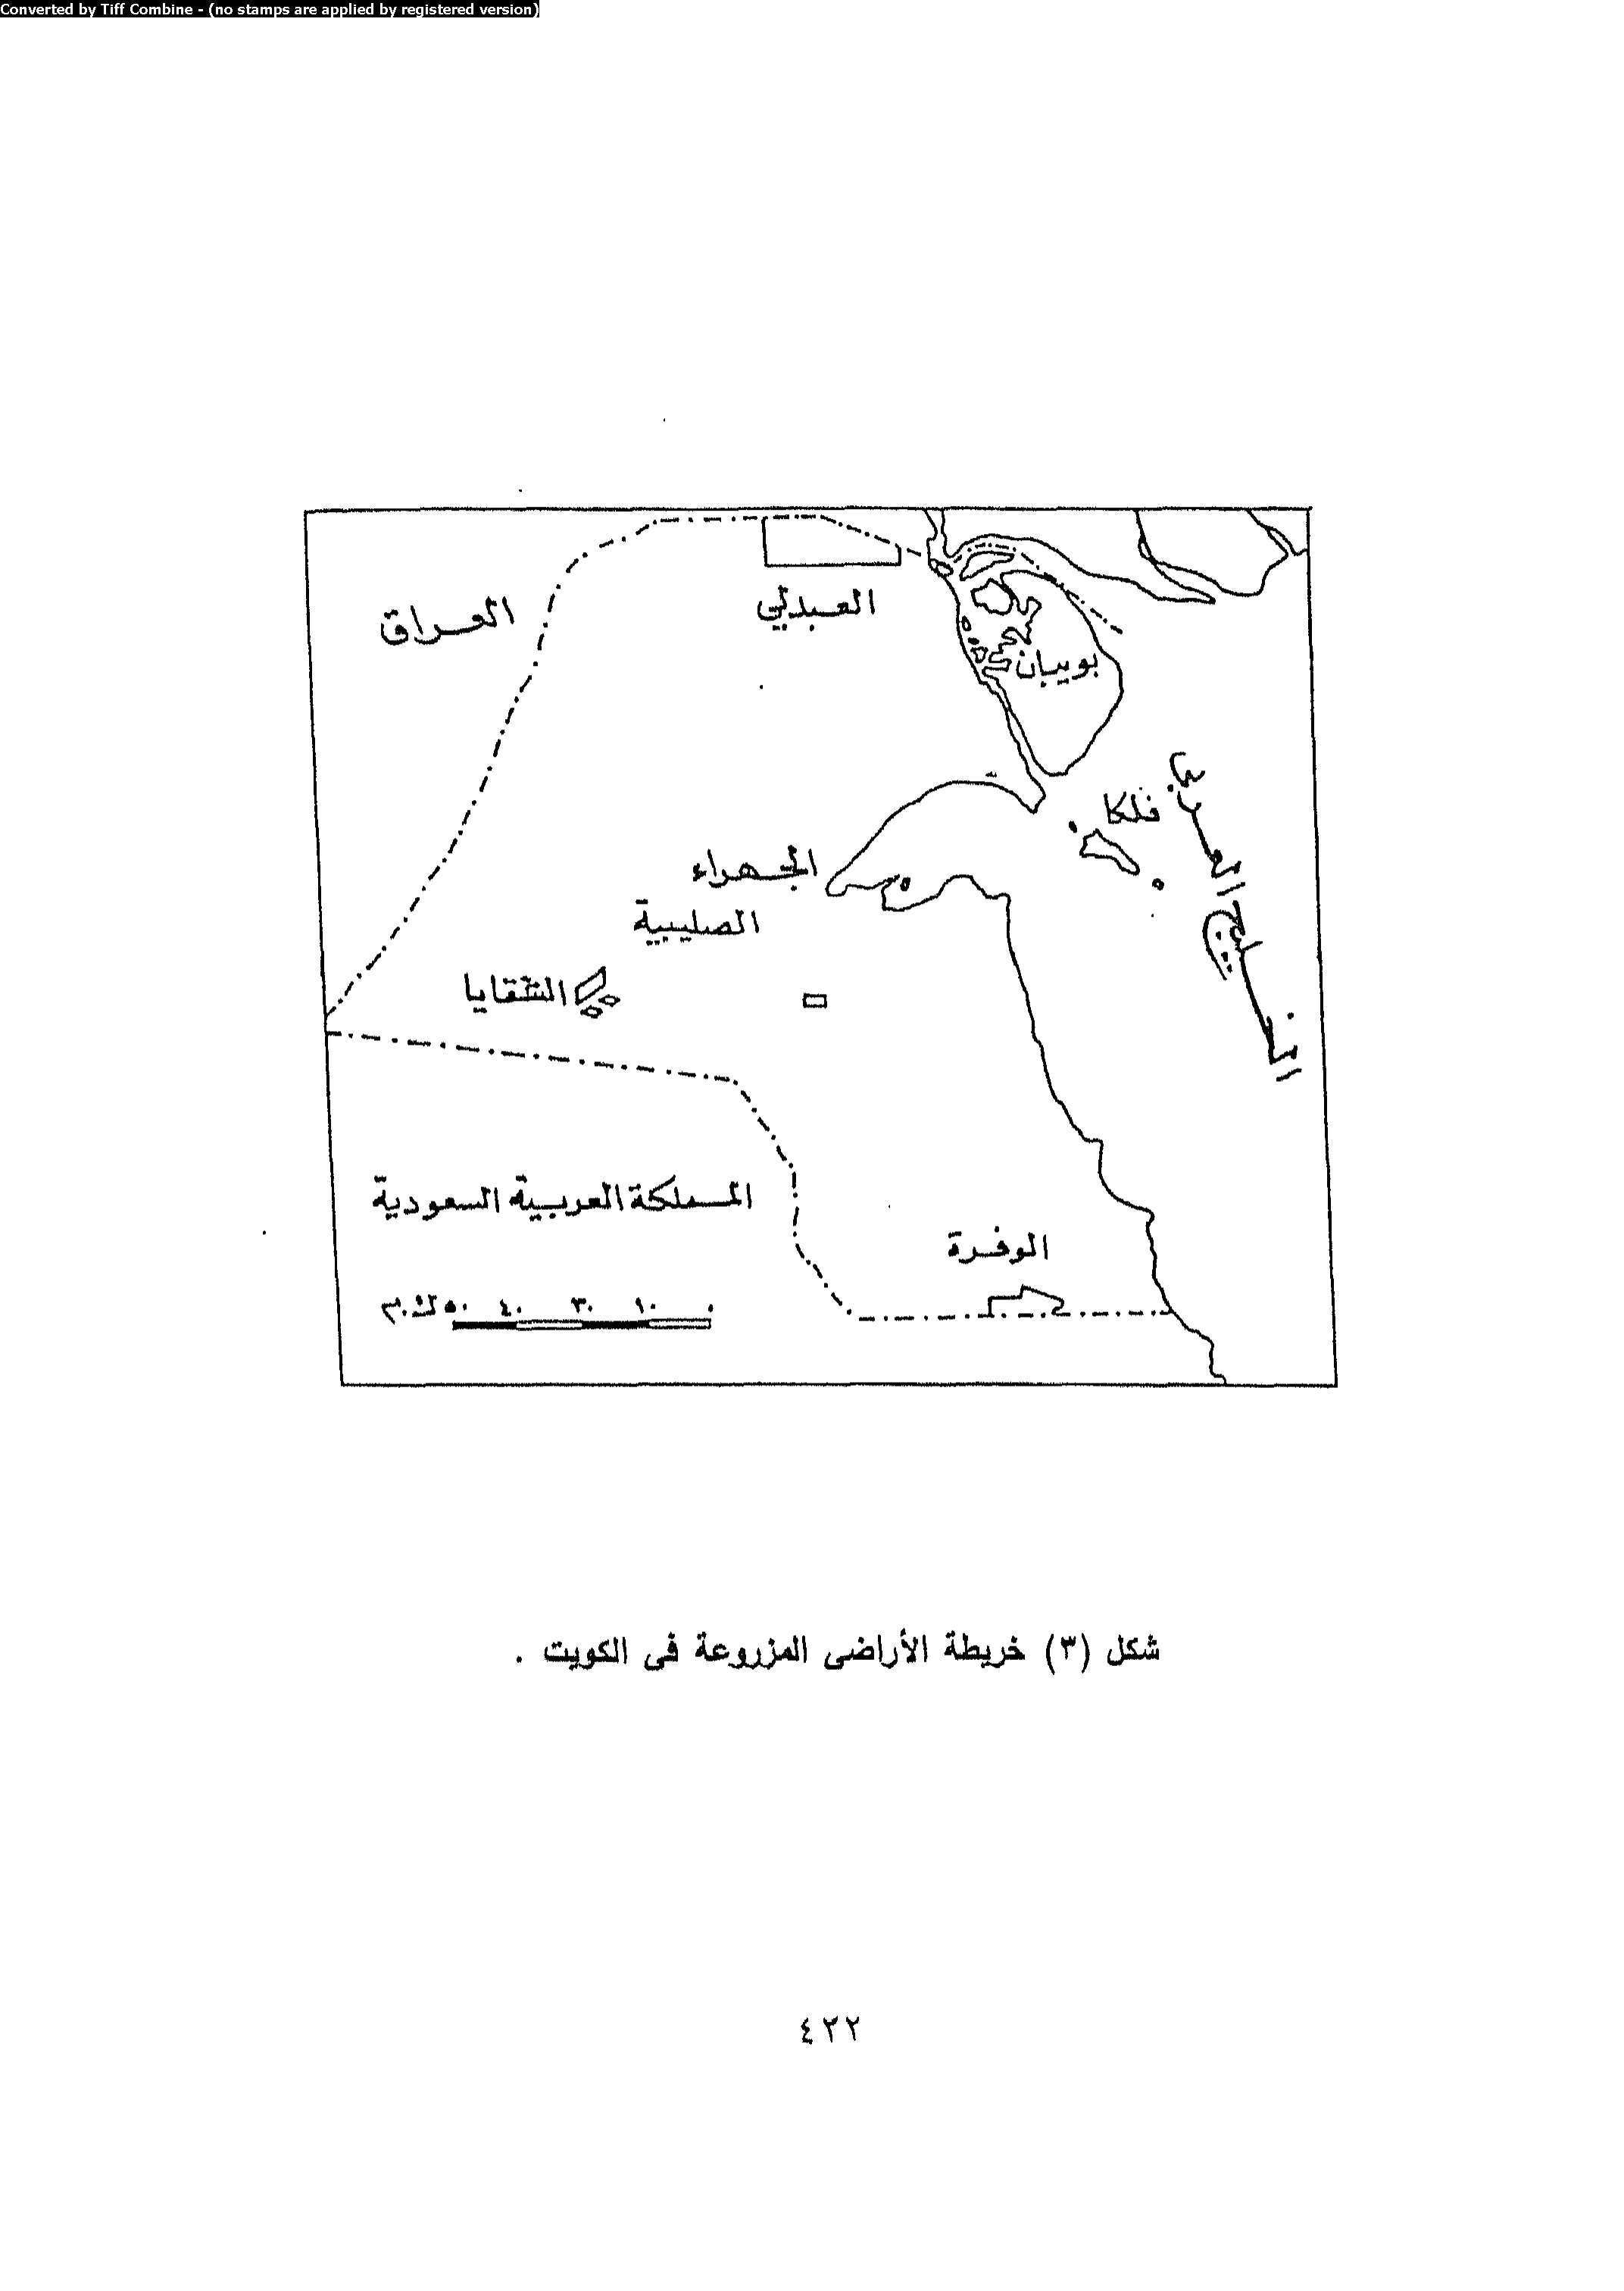 Converted by Tiff Combine - (no stamps are applied by registered version)
العراق
العبدلي
بوبيان
فلكا
الخليج العربي
الجهراء
الصليبية
الشقايا
المملكة العربية السعودية
الوفرة
٠ ١٠ ٣٠ ٤٠ ٥٠ ك.م
شكل (٣) خريطة الأراضى المزروعة فى الكويت .
٤٢٢